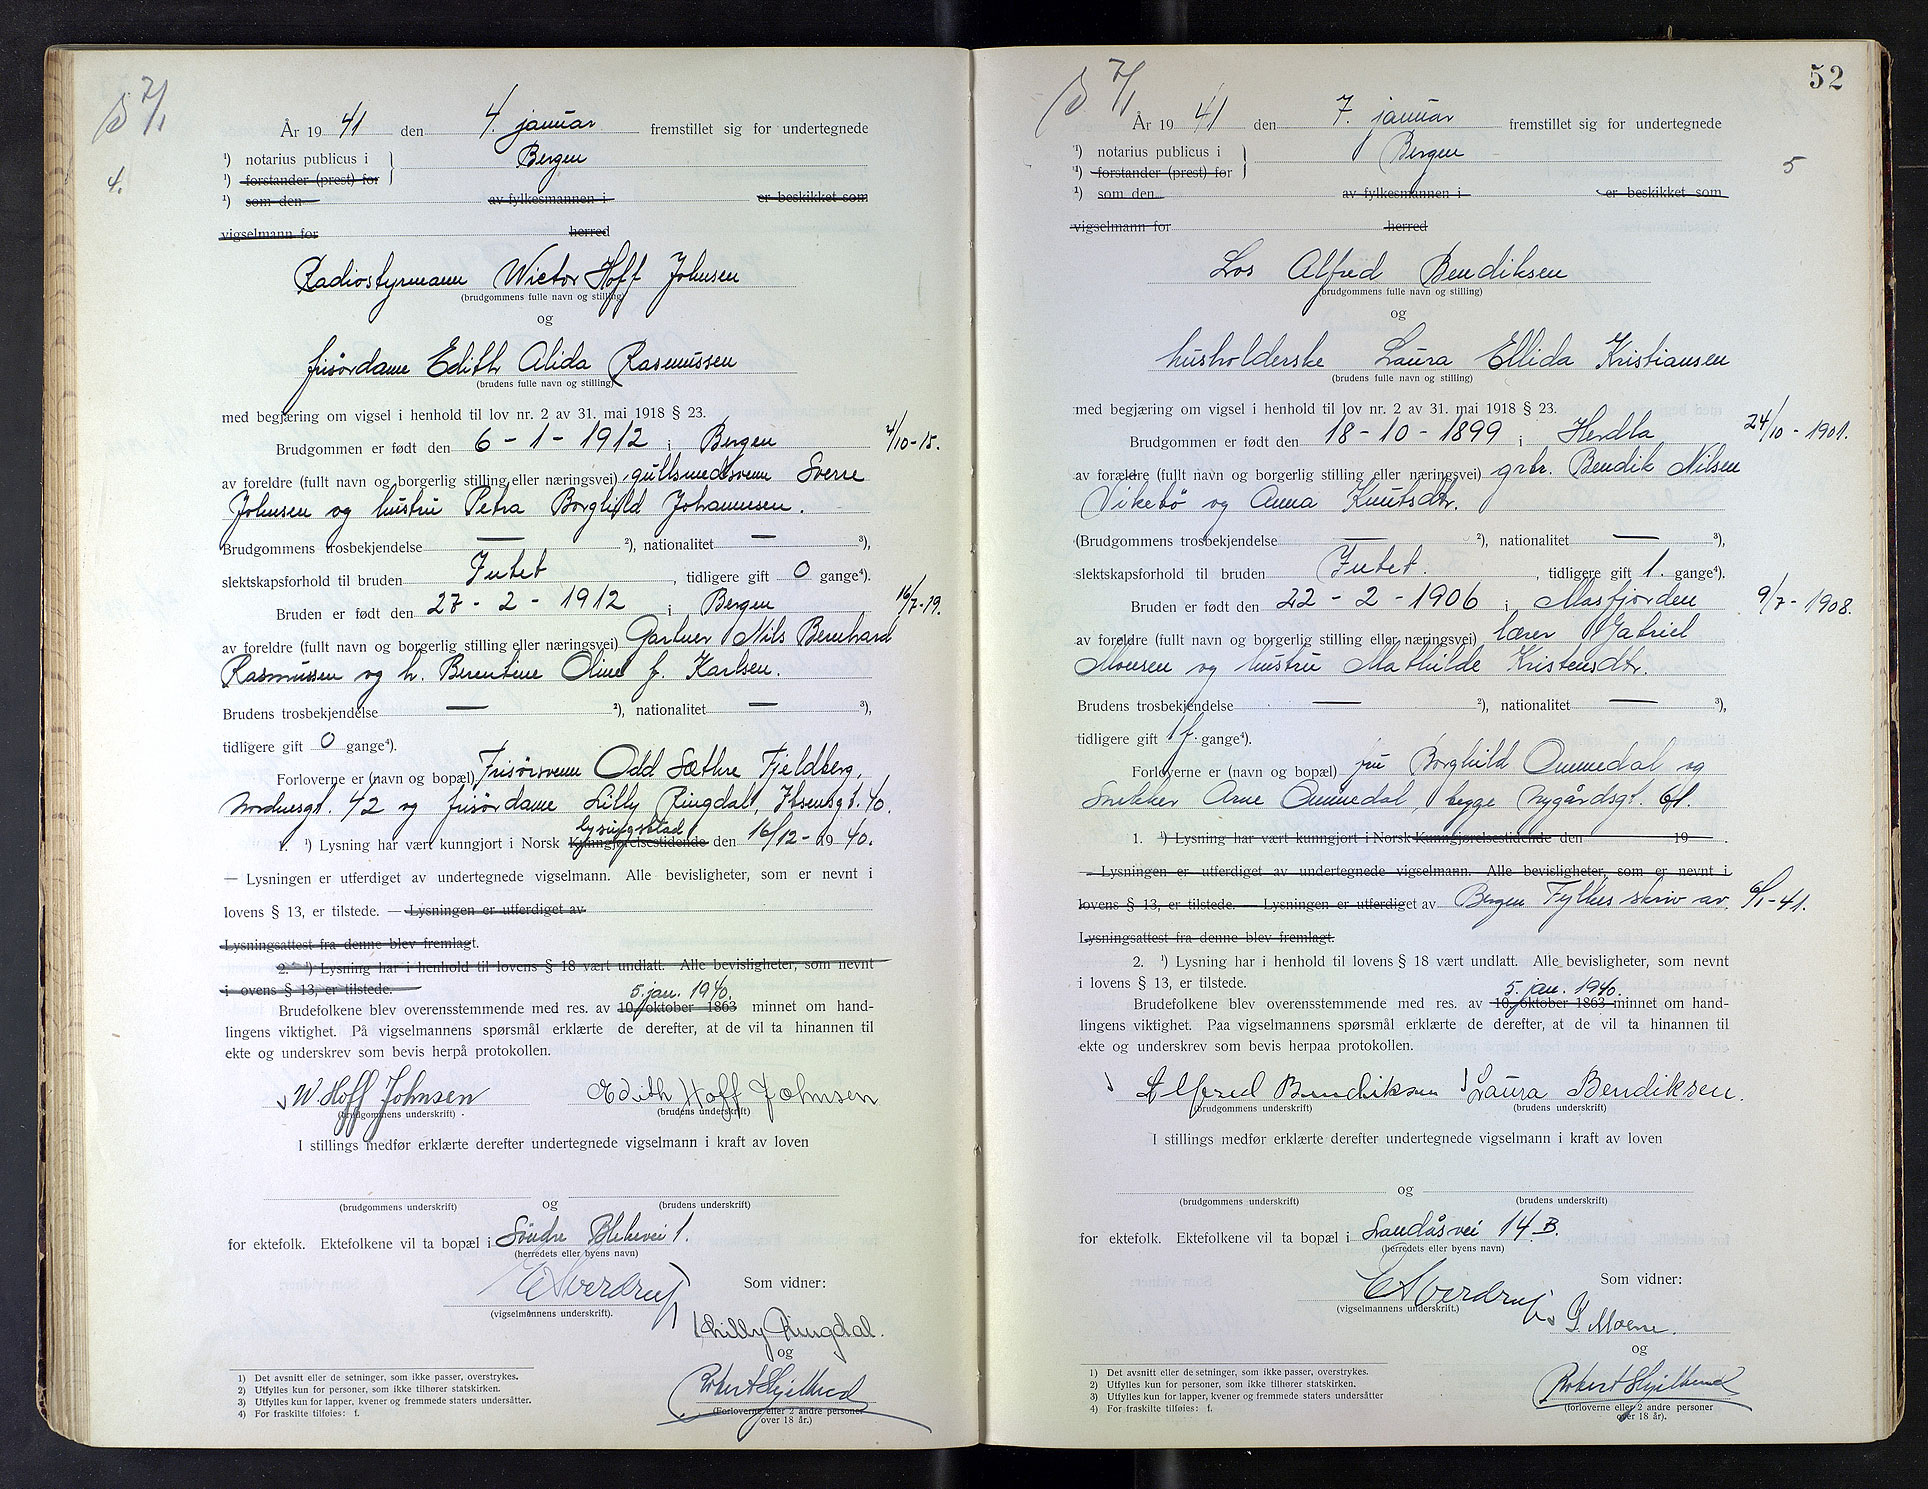 7/1
År 1941 den 4. januar fremstillet sig for undertegnede
4.
¹) notarius publicus i Bergen
¹) forstander (prest) for
¹) som den av fylkesmannen i er beskikket som
vigselmann for herred
Radiostyrmann Wictor Hoff Johnsen
(brudgommens fulle navn og stilling)
og
frisørdame Edith Alida Rasmussen
(brudens fulle navn og stilling)
med begjæring om vigsel i henhold til lov nr. 2 av 31. mai 1918 § 23.
Brudgommen er født den 6 - 1 - 1912 i Bergen 4/10 - 15.
av foreldre (fullt navn og borgerlig stilling eller næringsvei) gullsmedsvenn Sverre
Johnsen og hustru Petra Borghild Johannesen.
Brudgommens trosbekjendelse — ²), nationalitet — ³),
slektskapsforhold til bruden Intet, tidligere gift 0 gange⁴).
Bruden er født den 27 - 2 - 1912 i Bergen 16/7 - 19.
av foreldre (fullt navn og borgerlig stilling eller næringsvei) Gartner Nils Bernhard
Rasmussen og h. Berentine Oline f. Karlsen.
Brudens trosbekjendelse — ²), nationalitet — ³),
tidligere gift 0 gange⁴).
Forloverne er (navn og bopæl) Frisørsvenn Odd Sæthre Fjeldberg,
Nordnesgt. 42 og frisørdame Lilly Ringdal, Ibsensgt. 40.
lysingsblad
1. ¹) Lysning har vært kunngjort i Norsk Kunngjørelsestidende den 16/12 - 1940.
— Lysningen er utferdiget av undertegnede vigselmann. Alle bevisligheter, som er nevnt i
lovens § 13, er tilstede. — Lysningen er utferdiget av
Lysningsattest fra denne blev fremlagt.
2. ¹) Lysning har i henhold til lovens § 18 vært undlatt. Alle bevisligheter, som nevnt
i ovens § 13, er tilstede.
5. jan. 1940.
Brudefolkene blev overensstemmende med res. av 10. oktober 1863 minnet om hand-
lingens viktighet. På vigselmannens spørsmål erklærte de derefter, at de vil ta hinannen til
ekte og underskrev som bevis herpå protokollen.
W Hoff Johnsen Edith Hoff Johnsen
(brudgommens underskrift). (brudens underskrift)
I stillings medfør erklærte derefter undertegnede vigselmann i kraft av loven
og
(brudgommens underskrift) (brudens underskrift)
for ektefolk. Ektefolkene vil ta bopæl i Søndre Blekevei 1.
(herredets eller byens navn)
E Sverdrup Som vidner:
(vigselmannens underskrift).
Lilly Ringdal.
og
Robert Hjellbrend
(Forloverne eller 2 andre personer
over 18 år.)
1) Det avsnitt eller de setninger, som ikke passer, overstrykes.
2) Utfylles kun for personer, som ikke tilhører statskirken.
3) Utfylles kun for lapper, kvener og fremmede staters undersåtter.
4) For fraskilte tilføies: f.
52
7/1
År 1941 den 7. januar fremstillet sig for undertegnede
¹) notarius publicus i Bergen
5
¹) forstander (prest) for
¹) som den av fylkesmannen i er beskikket som
vigselmann for herred
Los Alfred Bendiksen
(brudgommens fulle navn og stilling)
og
husholderske Laura Ellida Kristiansen
(brudens fulle navn og stilling)
med begjæring om vigsel i henhold til lov nr. 2 av 31. mai 1918 § 23.
Brudgommen er født den 18 - 10 - 1899 i Herdla 24/10 - 1901.
av forældre (fullt navn og borgerlig stilling eller næringsvei) grbr. Bendik Nilsen
Vikebø og Anna Knutsdtr.
(Brudgommens trosbekjendelse — ²), nationalitet — ³),
slektskapsforhold til bruden Intet., tidligere gift 1. gange⁴).
Bruden er født den 22 - 2 - 1906 i Masfjorden 9/7 - 1908.
av foreldre (fullt navn og borgerlig stilling eller næringsvei) lærer Gabriel
Monsen og hustru Mathilde Kristensdtr.
Brudens trosbekjendelse — ²), nationalitet — ³),
tidligere gift 1 f. gange⁴).
Forloverne er (navn og bopæl) fru Borghild Ommedal og
Snekker Arne Ommedal, begge Nygårdsgt. 61.
1. ¹) Lysning har vært kunngjort i Norsk Kunngjørelsestidende den 19 .
- Lysningen er utferdiget av undertegnede vigselmann. Alle bevisligheter, som er nevnt i
lovens § 13, er tilstede. — Lysningen er utferdiget av Bergen Fylkes skriv av. 6/1 - 41.
Lysningsattest fra denne blev fremlagt.
2. ¹) Lysning har i henhold til lovens § 18 vært undlatt. Alle bevisligheter, som nevnt
i lovens § 13, er tilstede.
5. jan. 1940.
Brudefolkene blev overensstemmende med res. av 10. oktober 1863 minnet om hand-
lingens viktighet. Paa vigselmannens spørsmål erklærte de derefter, at de vil ta hinannen til
ekte og underskrev som bevis herpaa protokollen.
Alfred Bendiksen Laura Bendiksen.
(brudgommens underskrift) (brudens underskrift)
I stillings medfør erklærte derefter undertegnede vigselmann i kraft av loven
og
(brudgommens underskrift) (brudens underskrift)
for ektefolk. Ektefolkene vil ta bopæl i Landåsvei 14 B.
(herredets eller byens navn)
E Sverdrup Som vidner:
(vigselmannens underskrift.)
I. Moene.
og
Robert Hjellbrend
(forloverne eller 2 andre personer
over 18 år).
1) Det avsnitt eller de setninger, som ikke passer, overstrykes.
2) Utfylles kun for personer, som ikke tilhører statskirken.
3) Utfylles kun for lapper, kvener og fremmede staters undersåtter
4) For fraskilte tilføies: f.